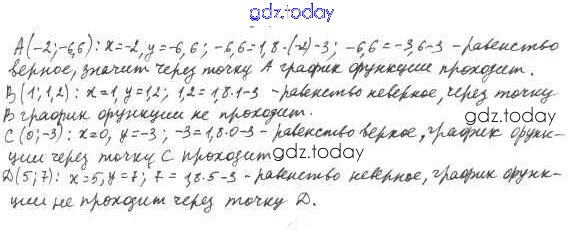 gdz.today
A(-2;-6,6): x=-2, y=-6,6; -6,6=1,8·(-2)-3; -6,6=-3,6-3 - равенство
верное, значит через точку A график функции проходит.
B(1;1,2): x=1, y=1,2; 1,2=1,8·1-3 - равенство неверное, через точку
B график функции не проходит.
C(0;-3): x=0, y=-3; -3=1,8·0-3 - равенство верное, график функ-
ции через точку C проходит
gdz.today
D(5;7): x=5, y=7; 7=1,8·5-3 - равенство неверное, график функ-
ции не проходит через точку D.